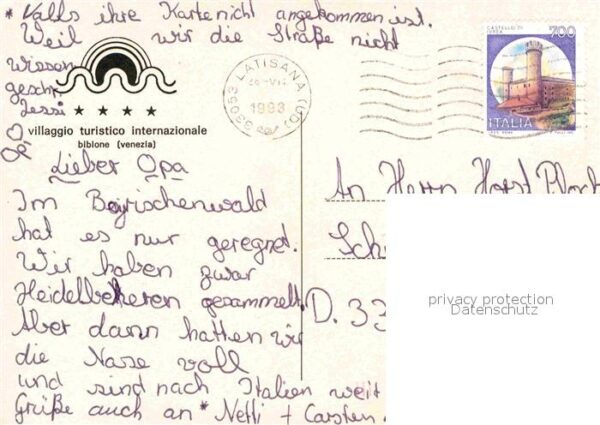 * Valls ihre Karte nicht angekommen ist.
Weil wir die Straße nicht
wissen
gesch.
Jessi
★ ★ ★ ★
villaggio turistico internazionale
bibione (venezia)
33053 LATISANA (UD)
1993
CASTELLO DI
IVREA
700
ITALIA
Opi
Lieber Opa
Im Bayrischenwald
hat es nur geregnet.
Wir haben zwar
Heidelbeheren gesammelt.
Aber dann hatten wir
die Nase voll
und sind nach Italien weit
Grüße auch an * Netti + Carsten.
An Herrn Horst
Sch
D. 33
privacy protection
Datenschutz